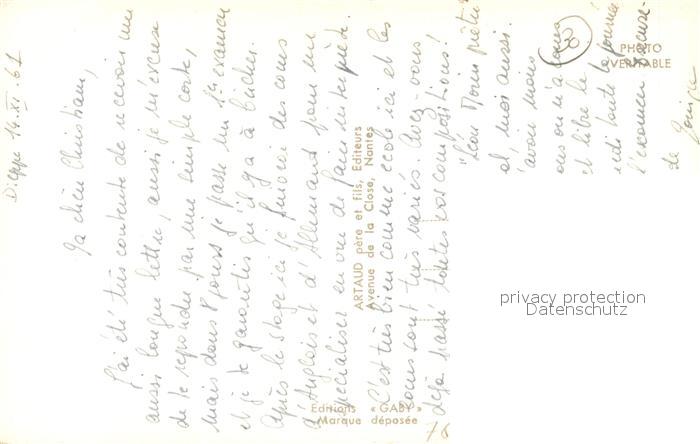 Dieppe 14.XI.61
Ma chère Christiane,
J'ai été très contente de recevoir une
aussi longue lettre, aussi je m'excuse
de te répondre par une simple carte,
mais dans 8 jours je passe un 1er examen
et je te garantis qu'il y a à bûcher.
Après le stage ici je suivrai des cours
d'Anglais et d'Allemand pour me
spécialiser en vue de faire interprète.
C'est très bien comme école ici et les
cours sont très variés. Avez-vous
déjà passé toutes vos compositions!
"Léon Morin prêtre
et moi aussi.
avoir nous
ous on n'a
et libre le
edi toute la journée
l'examen
de
PHOTO
VERITABLE
ARTAUD père et fils, Editeurs
Avenue de la Close, Nantes
Editions « GABY »
Marque déposée
78
privacy protection
Datenschutz